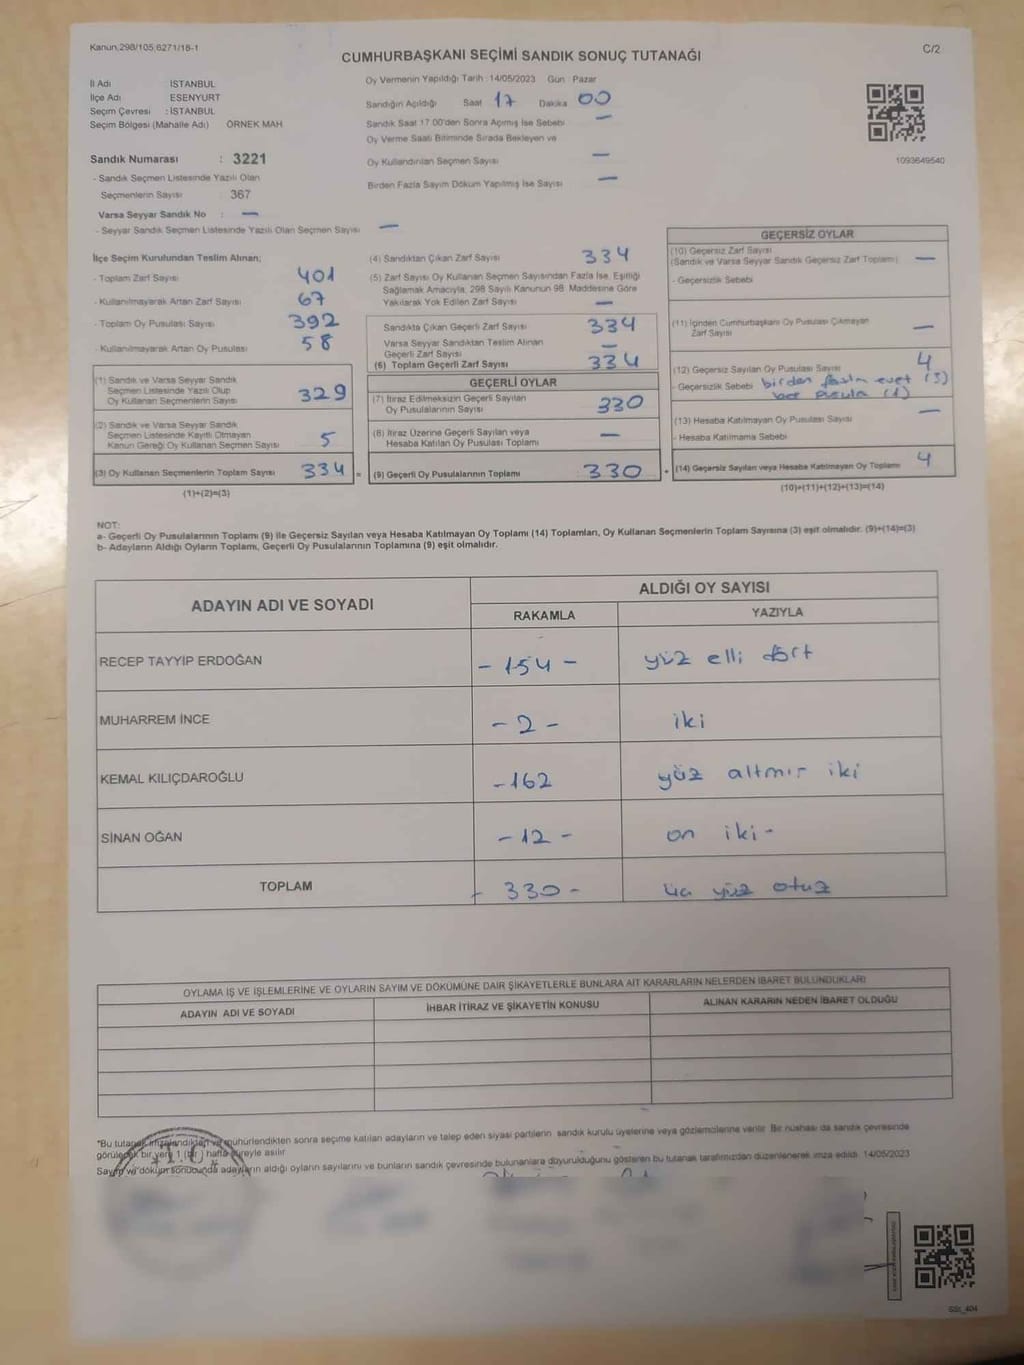 Kanun,298/105;6271/18-1
C/2
CUMHURBAŞKANI SEÇİMİ SANDIK SONUÇ TUTANAĞI
İl Adı : İSTANBUL
İlçe Adı : ESENYURT
Seçim Çevresi : İSTANBUL
Seçim Bölgesi (Mahalle Adı) ÖRNEK MAH
Sandık Numarası : 3221
- Sandık Seçmen Listesinde Yazılı Olan
Seçmenlerin Sayısı : 367
Varsa Seyyar Sandık No : —
- Seyyar Sandık Seçmen Listesinde Yazılı Olan Seçmen Sayısı —
Oy Vermenin Yapıldığı Tarih : 14/05/2023 Gün : Pazar
Sandığın Açıldığı Saat 17 Dakika 00
Sandık Saat 17.00'den Sonra Açımış İse Sebebi —
Oy Verme Saati Bitiminde Sırada Bekleyen ve
Oy Kullandırılan Seçmen Sayısı —
Birden Fazla Sayım Döküm Yapılmış İse Sayısı —
1093649540
İlçe Seçim Kurulundan Teslim Alınan;
- Toplam Zarf Sayısı 401
- Kullanılmayarak Artan Zarf Sayısı 67
- Toplam Oy Pusulası Sayısı 392
- Kullanılmayarak Artan Oy Pusulası 58
(1) Sandık ve Varsa Seyyar Sandık
Seçmen Listesinde Yazılı Olup
Oy Kullanan Seçmenlerin Sayısı 329
(2) Sandık ve Varsa Seyyar Sandık
Seçmen Listesinde Kayıtlı Olmayan
Kanun Gereği Oy Kullanan Seçmen Sayısı 5
(3) Oy Kullanan Seçmenlerin Toplam Sayısı 334 =
(1)+(2)=(3)
(4) Sandıktan Çıkan Zarf Sayısı 334
(5) Zarf Sayısı Oy Kullanan Seçmen Sayısından Fazla İse, Eşitliği
Sağlamak Amacıyla, 298 Sayılı Kanunun 98. Maddesine Göre
Yakılarak Yok Edilen Zarf Sayısı —
Sandıkta Çıkan Geçerli Zarf Sayısı 334
Varsa Seyyar Sandıktan Teslim Alınan
Geçerli Zarf Sayısı —
(6) Toplam Geçerli Zarf Sayısı 334
GEÇERLİ OYLAR
(7) İtiraz Edilmeksizin Geçerli Sayılan
Oy Pusulalarının Sayısı 330
(8) İtiraz Üzerine Geçerli Sayılan veya
Hesaba Katılan Oy Pusulası Toplamı —
(9) Geçerli Oy Pusulalarının Toplamı 330 +
GEÇERSİZ OYLAR
(10) Geçersiz Zarf Sayısı
(Sandık ve Varsa Seyyar Sandık Geçersiz Zarf Toplamı) —
- Geçersizlik Sebebi
(11) İçinden Cumhurbaşkanı Oy Pusulası Çıkmayan
Zarf Sayısı —
(12) Geçersiz Sayılan Oy Pusulası Sayısı 4
- Geçersizlik Sebebi birden fazla evet (3)
pusula (1)
(13) Hesaba Katılmayan Oy Pusulası Sayısı —
- Hesaba Katılmama Sebebi
(14) Geçersiz Sayılan veya Hesaba Katılmayan Oy Toplamı 4
(10)+(11)+(12)+(13)=(14)
NOT:
a- Geçerli Oy Pusulalarının Toplamı (9) ile Geçersiz Sayılan veya Hesaba Katılmayan Oy Toplamı (14) Toplamları, Oy Kullanan Seçmenlerin Toplam Sayısına (3) eşit olmalıdır. (9)+(14)=(3)
b- Adayların Aldığı Oyların Toplamı, Geçerli Oy Pusulalarının Toplamına (9) eşit olmalıdır.
ADAYIN ADI VE SOYADI
ALDIĞI OY SAYISI
RAKAMLA YAZIYLA
RECEP TAYYİP ERDOĞAN - 154 - yüz elli dört
MUHARREM İNCE - 2 - iki
KEMAL KILIÇDAROĞLU - 162 yüz altmış iki
SİNAN OĞAN - 12 - on iki -
TOPLAM - 330 - üç yüz otuz
OYLAMA İŞ VE İŞLEMLERİNE VE OYLARIN SAYIM VE DÖKÜMÜNE DAİR ŞİKAYETLERLE BUNLARA AİT KARARLARIN NELERDEN İBARET BULUNDUKLARI
ADAYIN ADI VE SOYADI İHBAR İTİRAZ VE ŞİKAYETİN KONUSU ALINAN KARARIN NEDEN İBARET OLDUĞU
*Bu tutanak imzalandıktan ve mühürlendikten sonra seçime katılan adayların ve talep eden siyasi partilerin sandık kurulu üyelerine veya gözlemcilerine verilir. Bir nüshası da sandık çevresinde
görülecek bir yere 1 (bir) hafta süreyle asılır.
Sayım ve döküm sonucunda adayların aldığı oyların sayılarını ve bunların sandık çevresinde bulunanlara duyurulduğunu gösteren bu tutanak tarafımızdan düzenlenerek imza edildi. 14/05/2023
T.C.
SSt_404